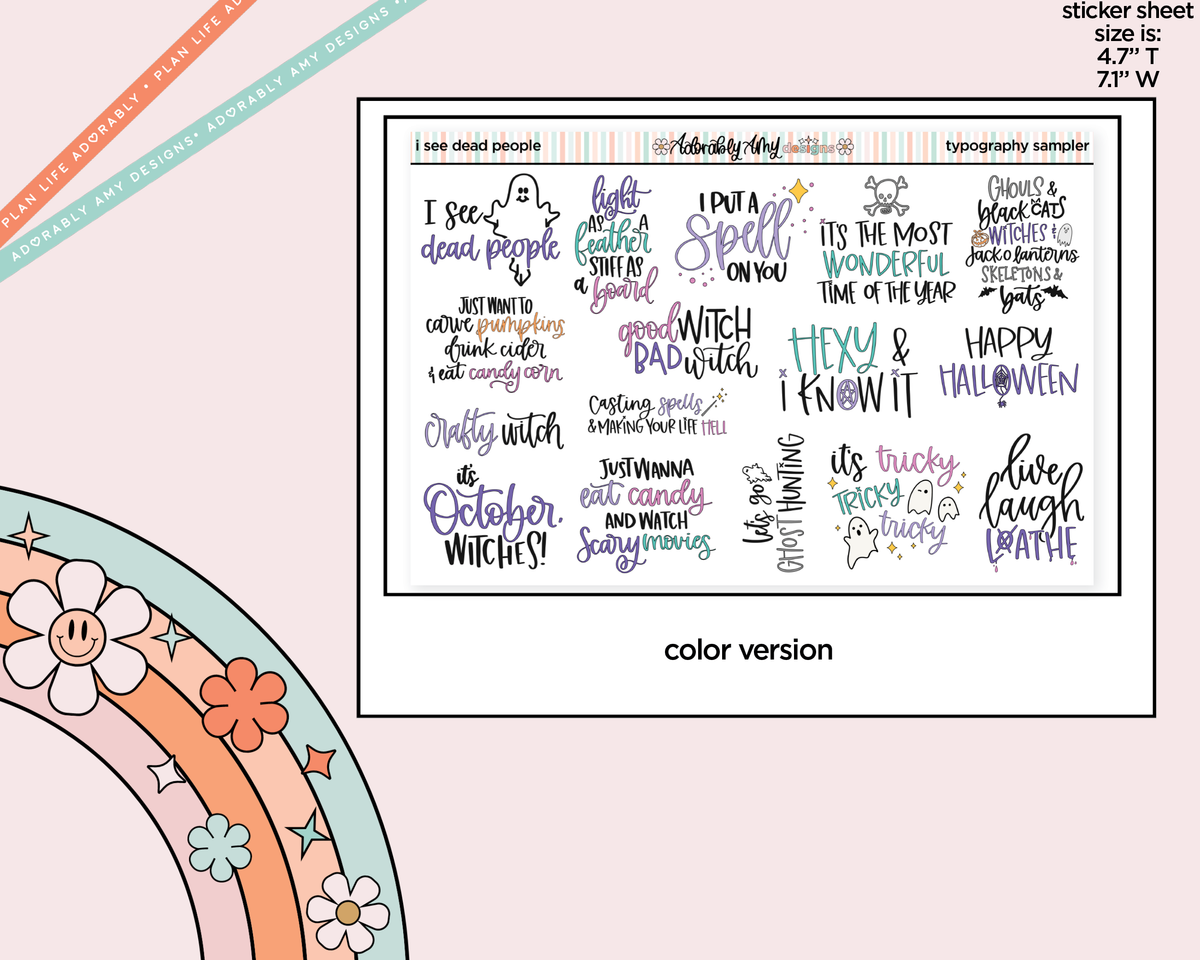 PLAN LIFE ADORABLY • PLAN LIFE AD
ADORABLY AMY DESIGNS • ADORABLY AMY DESIGNS •
sticker sheet
size is:
4.7” T
7.1” W
i see dead people
Adorably Amy designs
typography sampler
I see
dead people
light
AS A
feather
STIFF AS
a board
I PUT A
Spell
ON YOU
IT'S THE MOST
WONDERFUL
TIME OF THE YEAR
GHOULS &
black CATS
WITCHES &
Jack o lanterns
SKELETONS &
bats
JUST WANT TO
carve pumpkins
drink cider
& eat candy corn
good WITCH
BAD witch
HEXY &
i KNOW iT
HAPPY
HALLOWEEN
crafty witch
Casting spells
& MAKING YOUR LIFE HELL
it's
October,
WITCHES!
JUST WANNA
eat candy
AND WATCH
Scary movies
let's go
GHOST HUNTING
it's tricky
TRICKY
tricky
live
laugh
LOATHE
color version